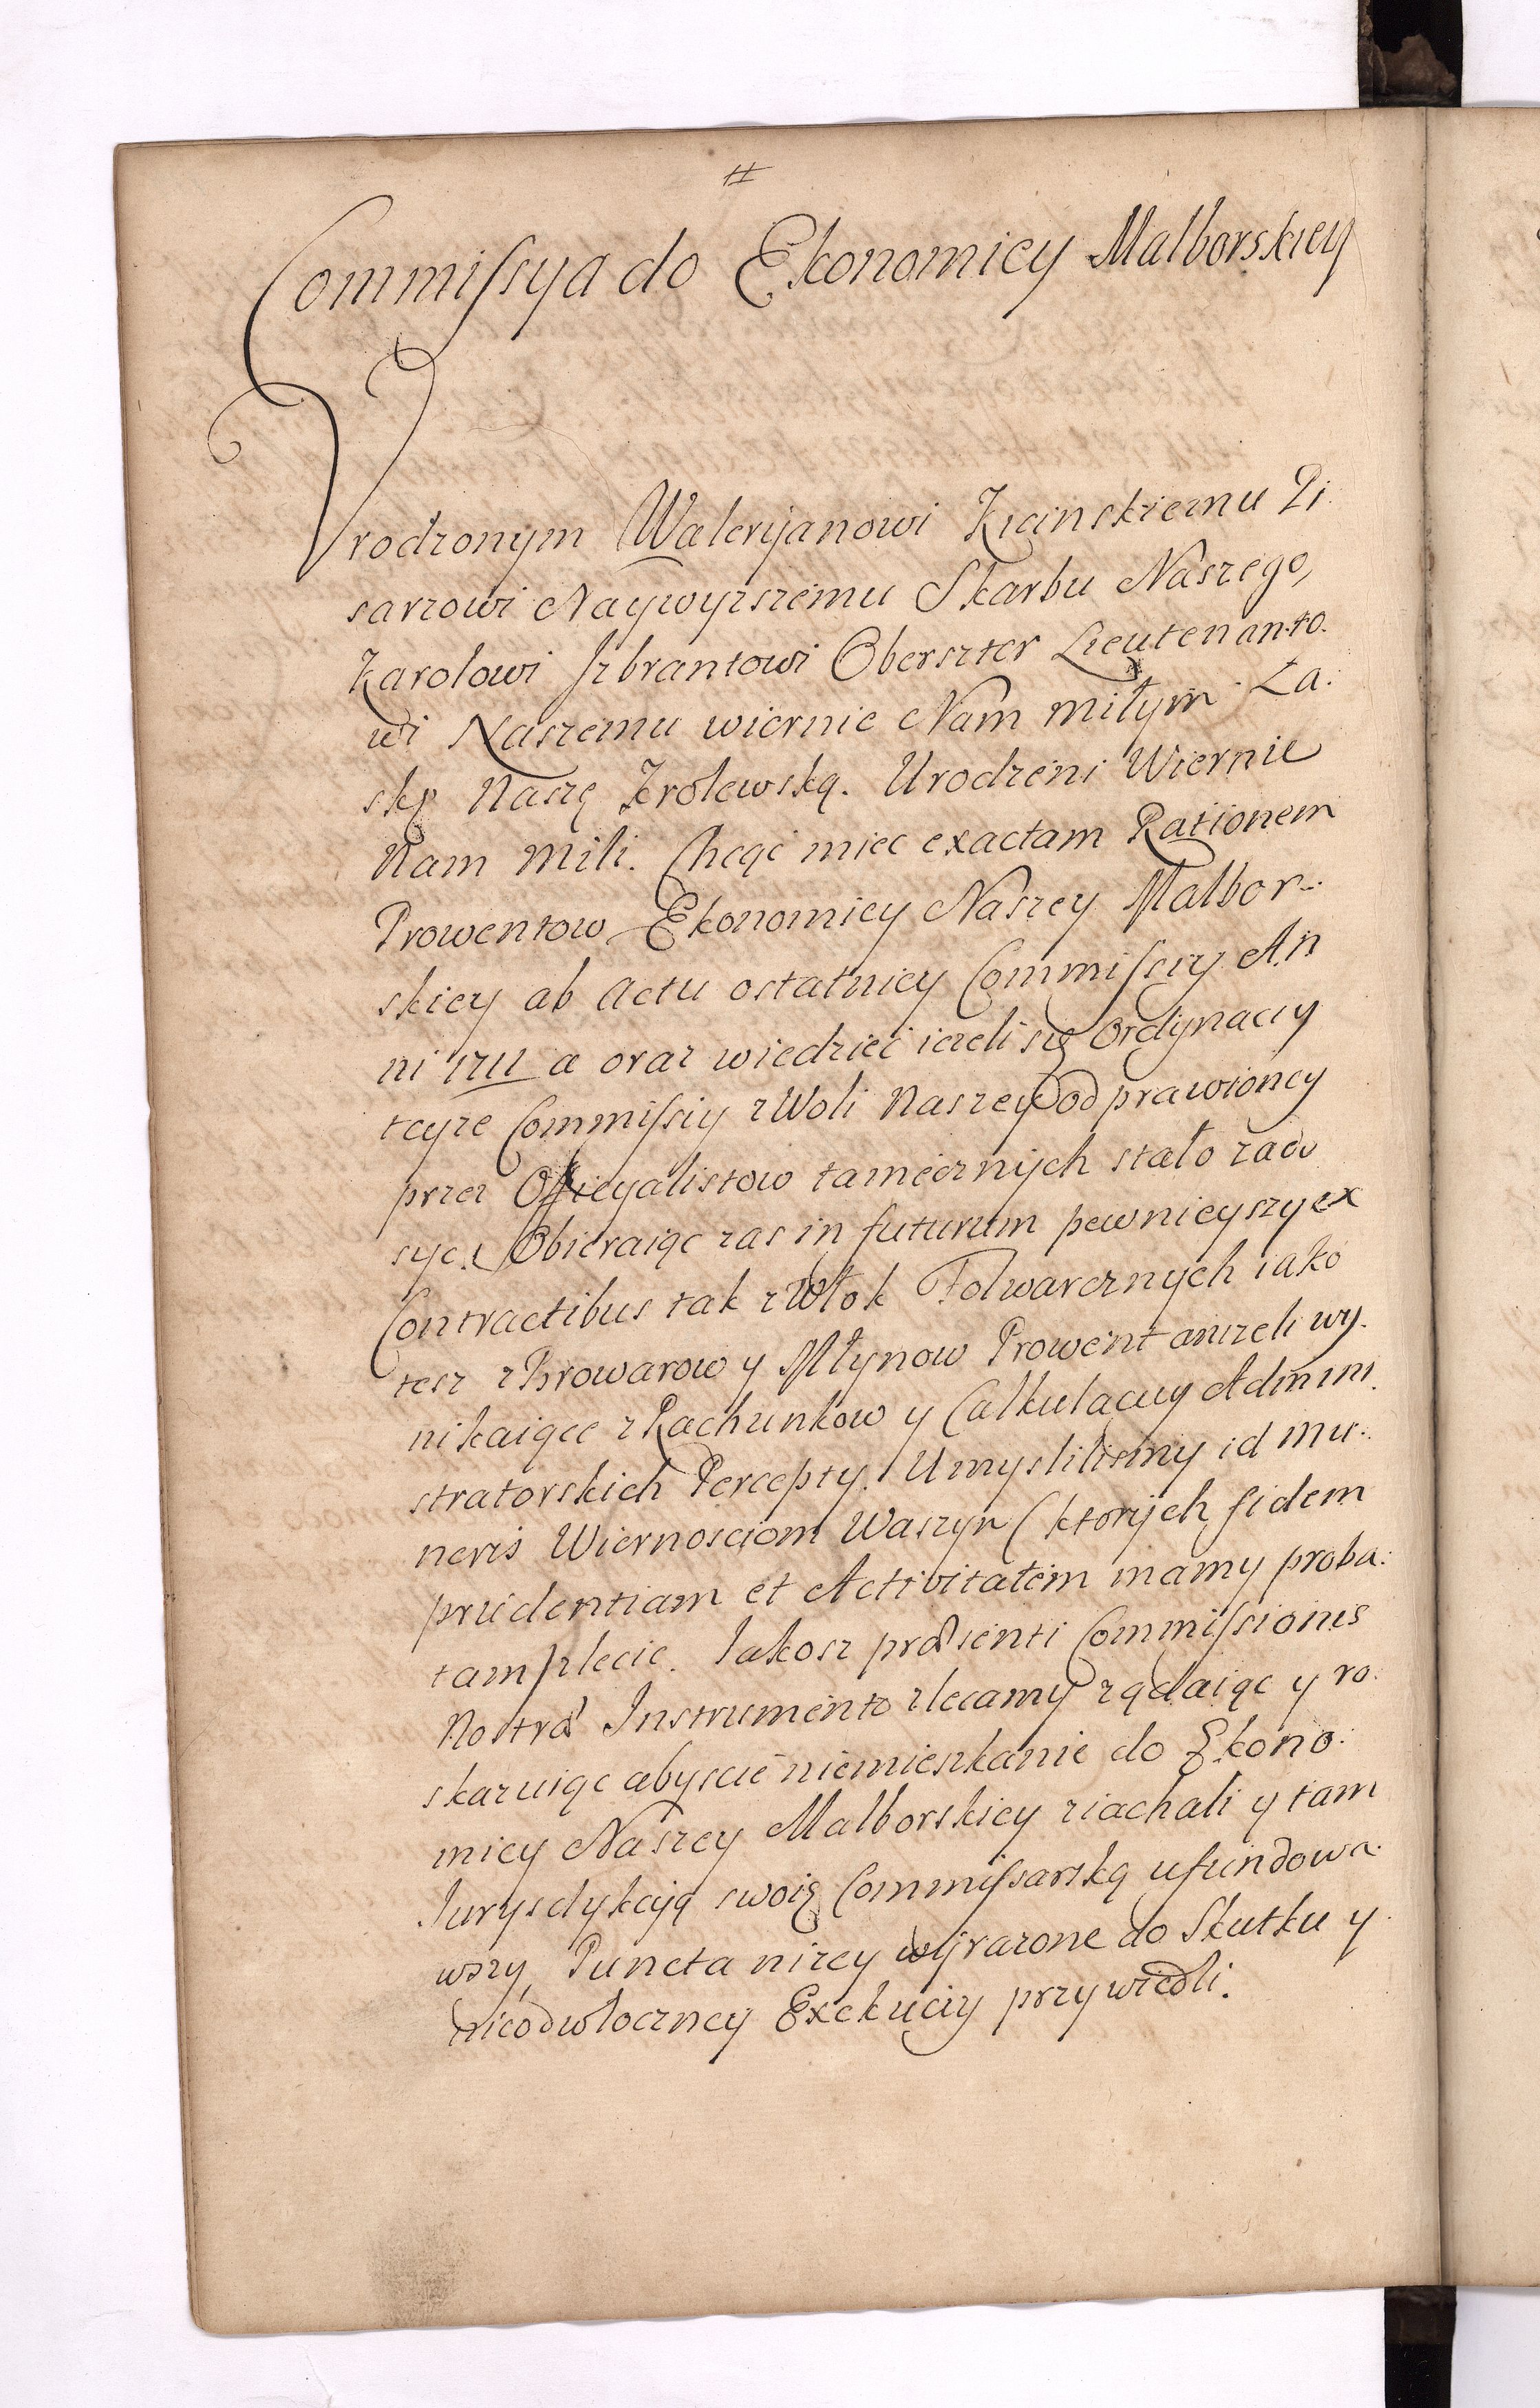 #
Commissya do Ekonomiey Malborskiey
Vrodzonym Waleryjanowi Kicinskiemu Pi:
sarzowi Naywyzszemu Skarbu Naszego,
Karolowi Izbrantowi Oberszter Lieutenanto:
wi Naszemu wiernie Nam miłym Ła:
skę Naszę Krolewską. Urodzeni Wiernie
Nam Mili. Chcąc miec exactam Rationem
Prowentow Ekonomiey Naszey Malbor:
skiey ab Actu ostatniey Commissiy An
ni 1711 a oraz wiedziec iezeli się Ordynacyy
teyze Commissiy z Woli Naszey odprawioney
przez Officyalistow tamecznych stało zado
syc. Obieraiąc zas in futurum pewnieyszy ex
Contractibus tak z Włok Folwarcznych iako
tesz z Browarow y Młynow Prowent anizeli wy:
nikaiące z Rachunkow y Calkulacyy Admini:
stratorskich Percepty. Umyslilismy id mu:
neris Wiernosciom Waszym (ktorych fidem
prudentiam et Activitatem mamy proba:
tam) zlecic. Iakosz præsenti Commissionis
Nostræ Instrumento zlecamy ządaiąc y ro:
skazuiąc abyscie niemieszkanie do Ekono:
miey Naszey Malborskiey ziachali y tam
Iurysdykcyą swoię Commissarską ufundowa:
wszy, Puncta nizey wyrazone do Skutku y
nieodwłoczney Exekucyy przywiedli.